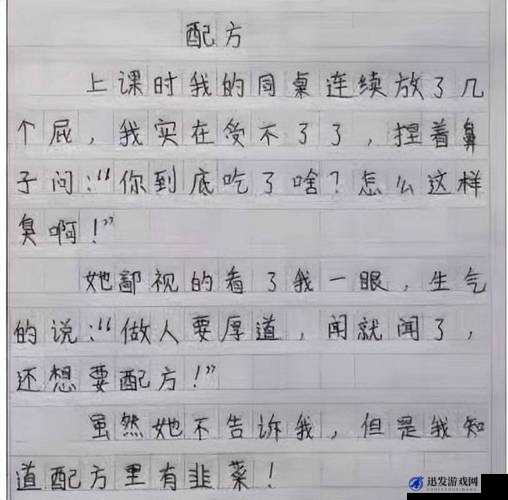 配方
上课时我的同桌连续放了几
个屁，我实在受不了了，捏着鼻
子问：“你到底吃了啥？怎么这样
臭啊！”
她鄙视的看了我一眼，生气
的说：“做人要厚道，闻就闻了，
还想要配方！”
虽然她不告诉我，但是我知
道配方里有韭菜！
迅发游戏网